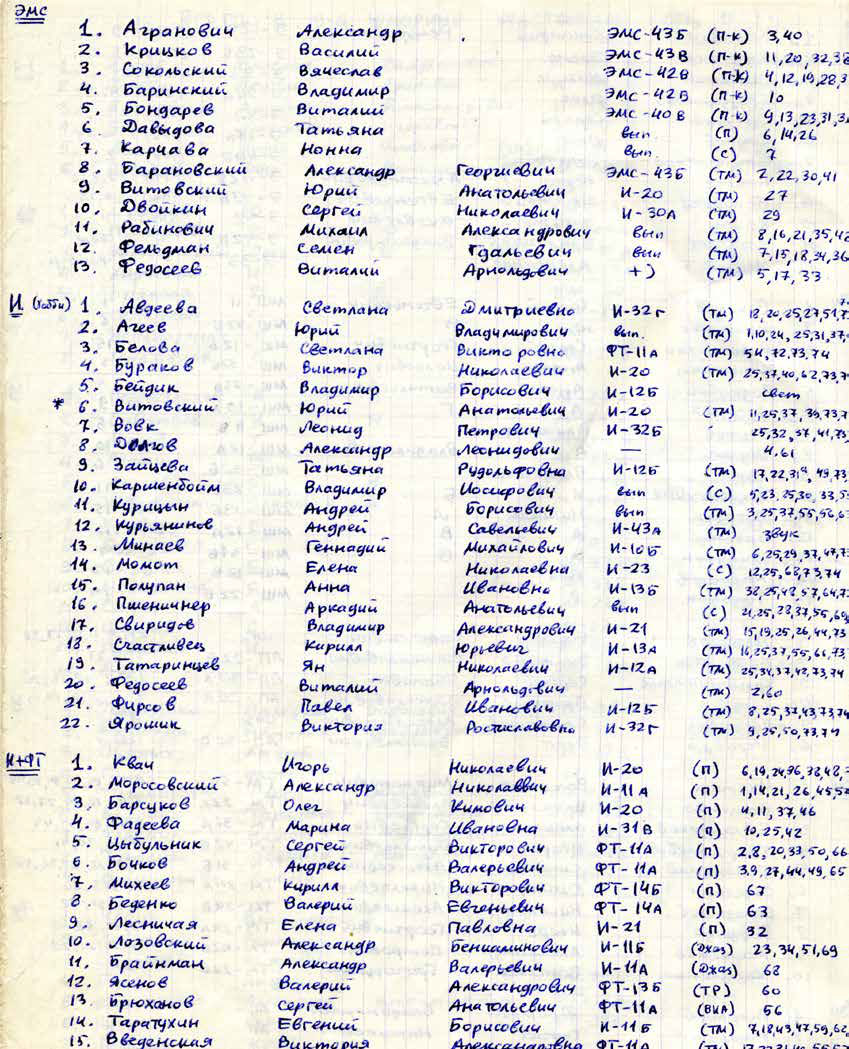 ЭМС
1. Агранович Александр ЭМС-43Б (П-К) 3,40
2. Крицков Василий ЭМС-43В (П-К) 11,20,32,38
3. Сокольский Вячеслав ЭМС-42В (П-К) 4,12,19,28,3
4. Баринский Владимир ЭМС-42В (П-К) 10
5. Бондарев Виталий ЭМС-40В (П-К) 9,13,23,31,3
6. Давыдова Татьяна вып. (П) 6,14,26
7. Карчава Нонна вып. (С) 7
8. Барановский Александр Георгиевич ЭМС-43Б (ТМ) 2,22,30,41
9. Витовский Юрий Анатольевич И-20 (ТМ) 27
10. Двойкин Сергей Николаевич И-30А (ТМ) 29
11. Рабинович Михаил Александрович вып (ТМ) 8,16,21,35,42
12. Фельдман Семен Гдальевич вып (ТМ) 7,15,18,34,36
13. Федосеев Виталий Арнольдович +) (ТМ) 5,17,33
И. (хобби) 1. Авдеева Светлана Дмитриевна И-32г (ТМ) 18,20,25,27,51,7
2. Агеев Юрий Владимирович вып. (ТМ) 1,10,24,25,31,37,
3. Белова Светлана Викторовна ФТ-11А (ТМ) 54,72,73,74
4. Бураков Виктор Николаевич И-20 (ТМ) 25,37,40,62,73,7
5. Бейдик Владимир Борисович И-12Б свет
* 6. Витовский Юрий Анатольевич И-20 (ТМ) 11,25,37,39,73,7
7. Вовк Леонид Петрович И-32Б 25,32,37,41,73,
8. Долгов Александр Леонидович — 4,61
9. Зайцева Татьяна Рудольфовна И-12Б (ТМ) 17,22,31,49,73,
10. Каршенбойм Владимир Иосифович вып (С) 5,23,25,30,33,5
11. Курицын Андрей Борисович вып (ТМ) 3,25,37,55,56,6
12. Курьянинов Андрей Савельевич И-43А (ТМ) звук
13. Минаев Геннадий Михайлович И-10Б (ТМ) 6,25,29,37,47,7
14. Момот Елена Николаевна И-23 (С) 12,25,68,73,74
15. Полупан Анна Ивановна И-13Б (ТМ) 38,25,48,57,64,7
16. Пшеничнер Аркадий Анатольевич вып (С) 21,25,28,37,55,69
17. Свиридов Владимир Александрович И-21 (ТМ) 15,19,25,26,44,73
18. Счастливец Кирилл Юрьевич И-13А (ТМ) 16,25,37,55,66,73
19. Татаринцев Ян Николаевич И-12А (ТМ) 25,34,37,42,73,74
20. Федосеев Виталий Арнольдович — (ТМ) 2,60
21. Фирсов Павел Иванович И-12Б (ТМ) 8,25,37,43,73,74
22. Ярошик Виктория Ростиславовна И-32г (ТМ) 9,25,50,73,74
И+ФТ 1. Квач Игорь Николаевич И-20 (П) 6,19,24,36,38,48,
2. Моросовский Александр Николаевич И-11А (П) 1,14,21,26,45,5
3. Барсуков Олег Кимович И-20 (П) 4,11,37,46
4. Фадеева Марина Ивановна И-31В (П) 10,25,42
5. Цыбульник Сергей Викторович ФТ-11А (П) 2,8,20,33,50,66
6. Бочков Андрей Валерьевич ФТ-11А (П) 3,9,27,44,49,65
7. Михеев Кирилл Викторович ФТ-14Б (П) 67
8. Беденко Валерий Евгеньевич ФТ-14А (П) 63
9. Лесничая Елена Павловна И-21 (П) 32
10. Лозовский Александр Бениаминович И-11Б (Джаз) 23,34,51,69
11. Брайнман Александр Валерьевич И-11А (Джаз) 68
12. Ясенов Валерий Александрович ФТ-13Б (ТР) 60
13. Брюханов Сергей Анатольевич ФТ-11А (ВИА) 56
14. Таратухин Евгений Борисович И-11Б (ТМ) 7,18,43,47,59,62
15. Введенская Виктория Александровна ФТ-11А (ТМ)